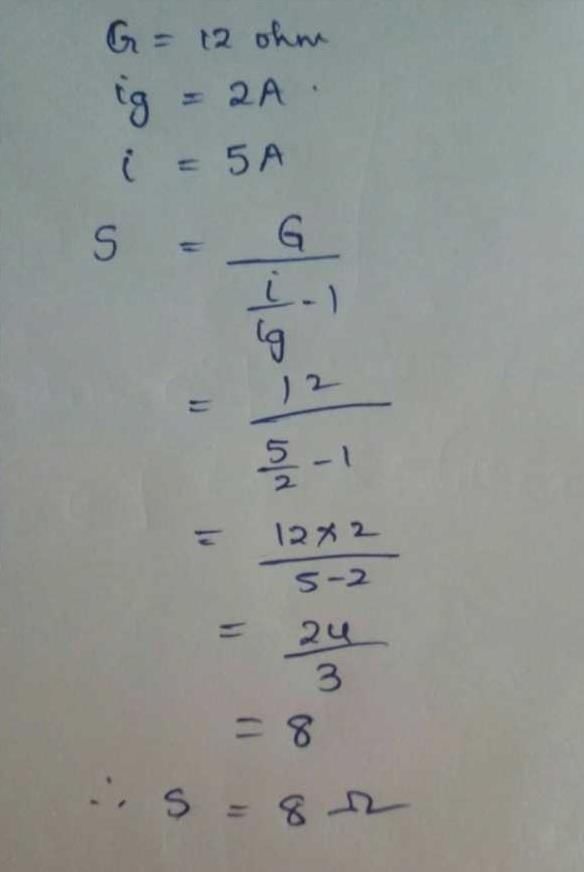 G = 12 ohm
ig = 2A .
i = 5A
S = G / (i/ig - 1)
= 12 / (5/2 - 1)
= 12×2 / 5-2
= 24 / 3
= 8
∴ S = 8 Ω